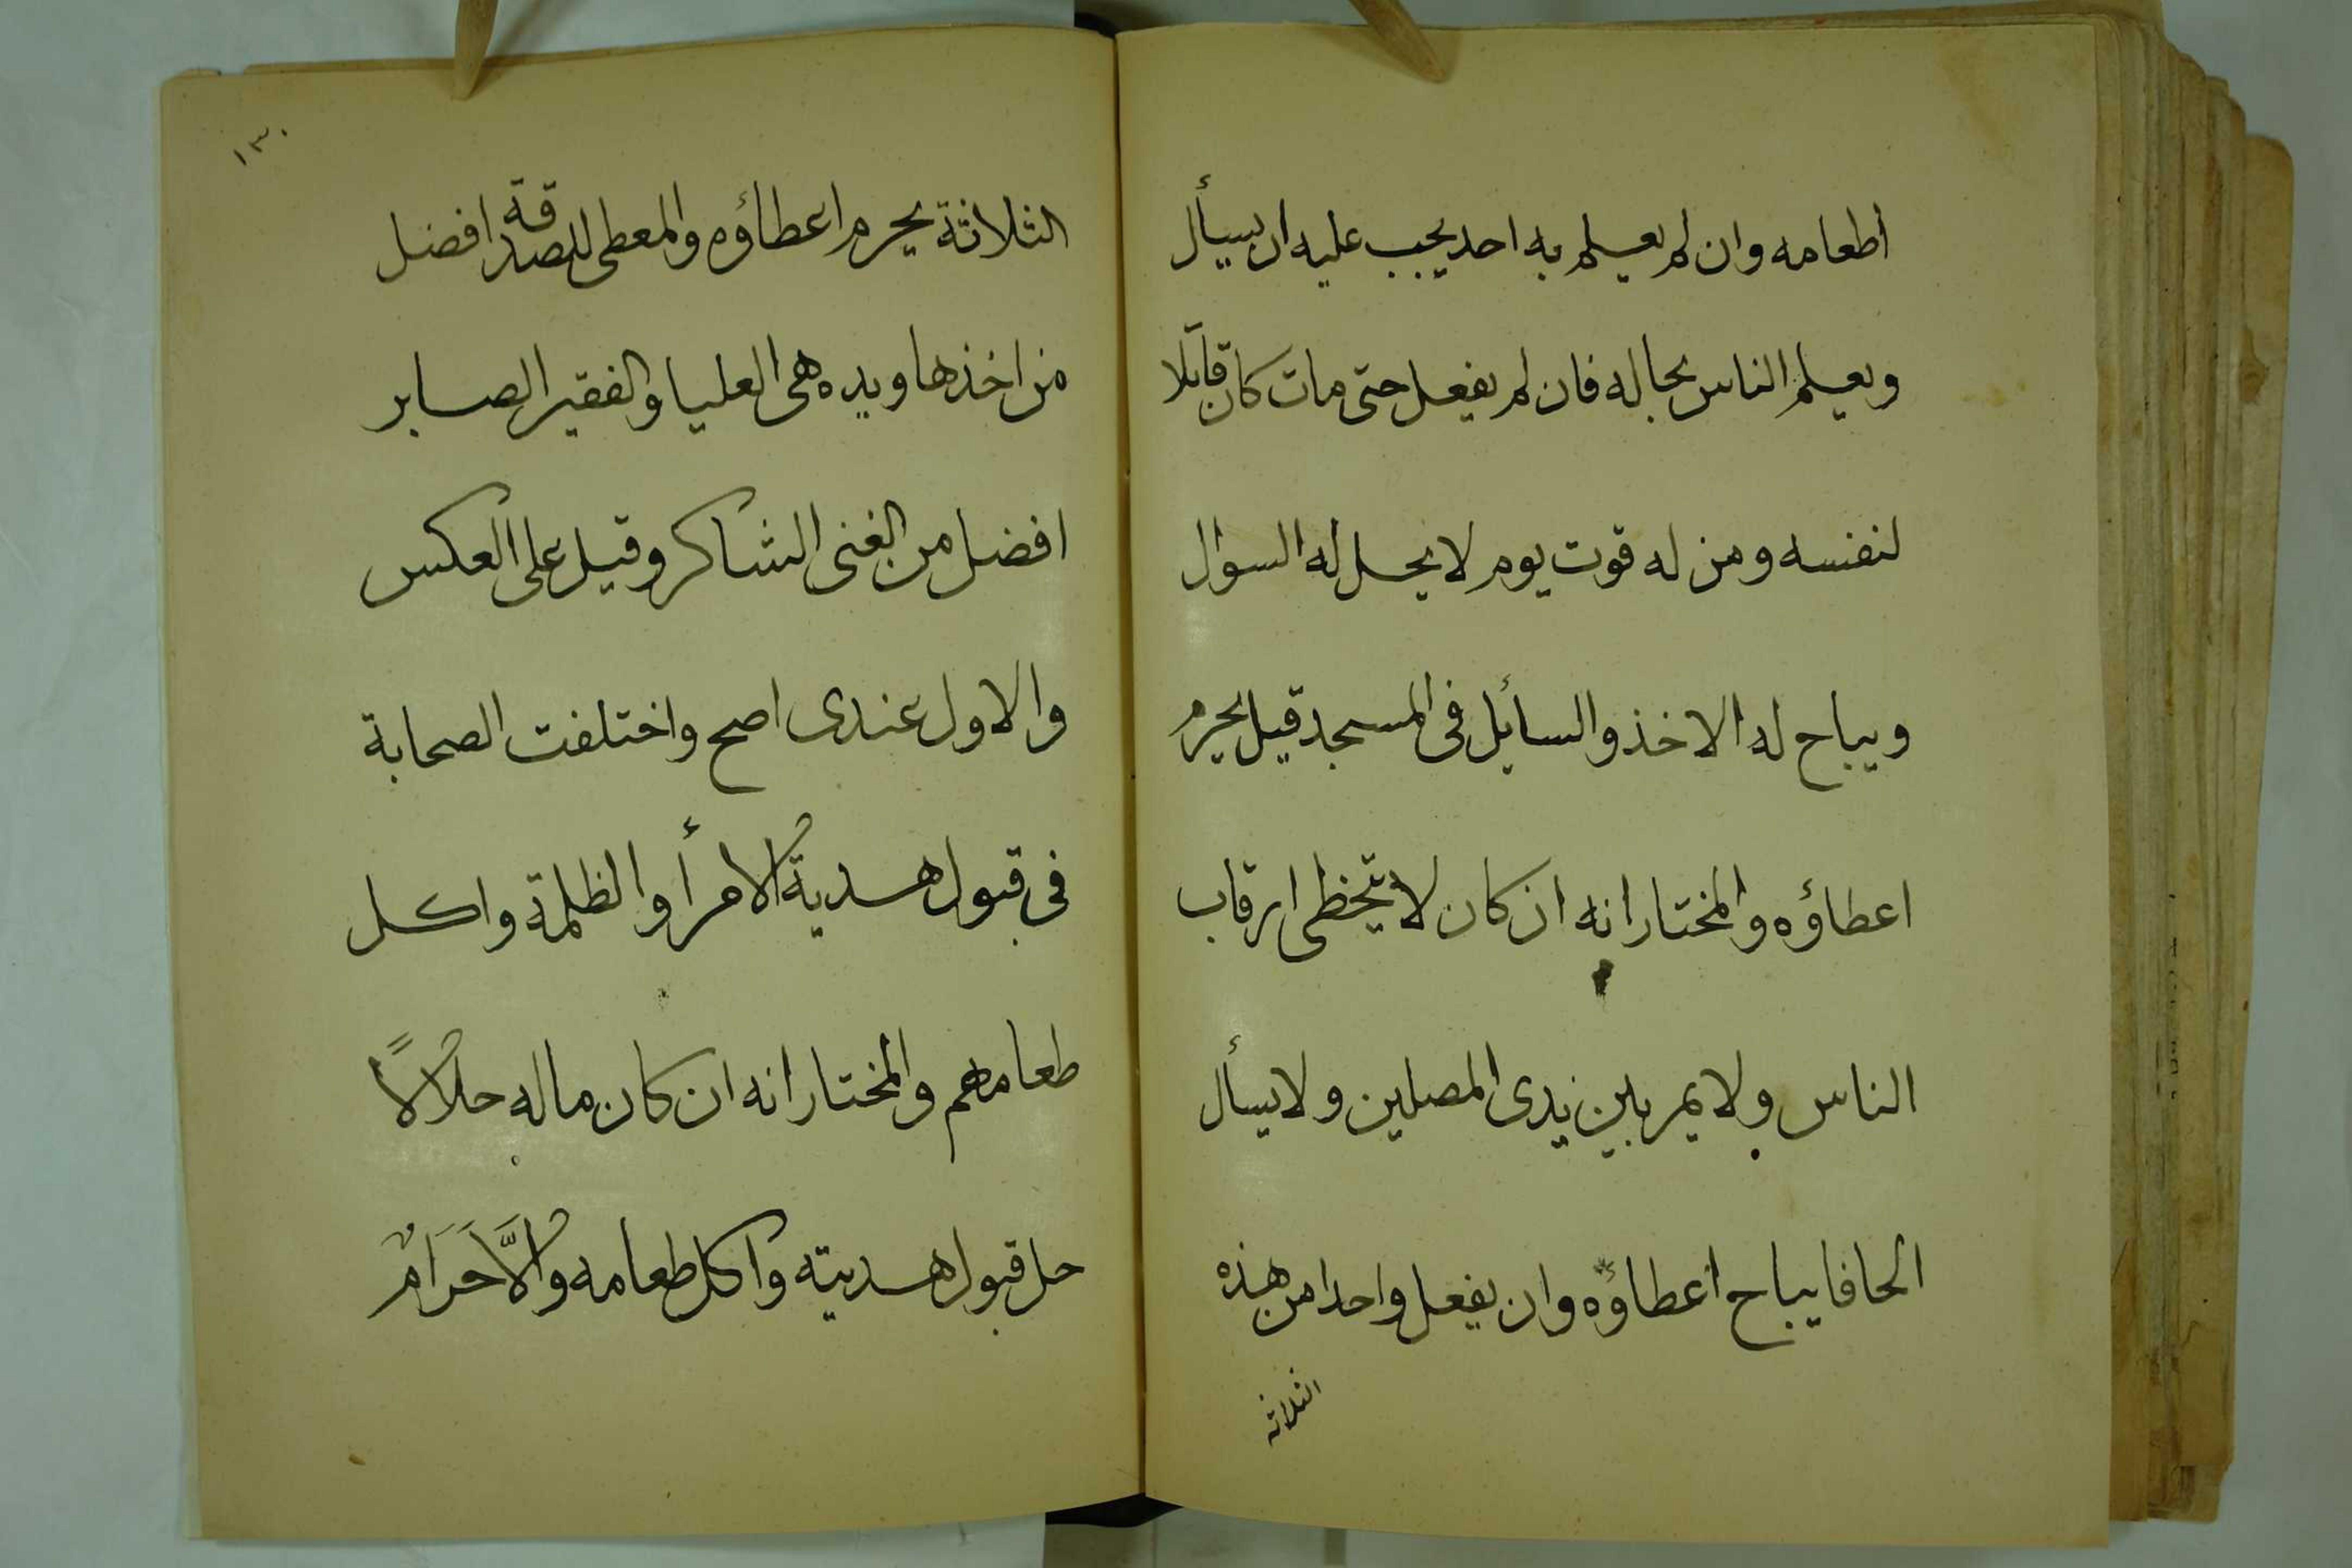 أطعامه وان لم يعلم به احد يجب عليه ان يسأل
ويعلم الناس بحاله فان لم يفعل حتى مات كان قاتلا
لنفسه ومن له قوت يوم لا يحل له السوال
ويباح له الاخذ والسائل فى المسجد قيل يحرم
اعطاؤه والمختار انه ان كان لا يتخطى رقاب
الناس ولا يمر بين يدى المصلين ولا يسأل
الحافا يباح اعطاؤه وان يفعل واحدا من هذه
الثلاثه
١٣٠
الثلاثة يحرم اعطاؤه والمعطى للصدقة افضل
من اخذها ويده هى العليا والفقير الصابر
افضل من الغنى الشاكر وقيل على العكس
والاول عندى اصح واختلفت الصحابة
فى قبول هدية الامرأ والظلمة واكل
طعامهم والمختار انه ان كان ماله حلالاً
حل قبول هديته واكل طعامه والَّا حَرَامٌ